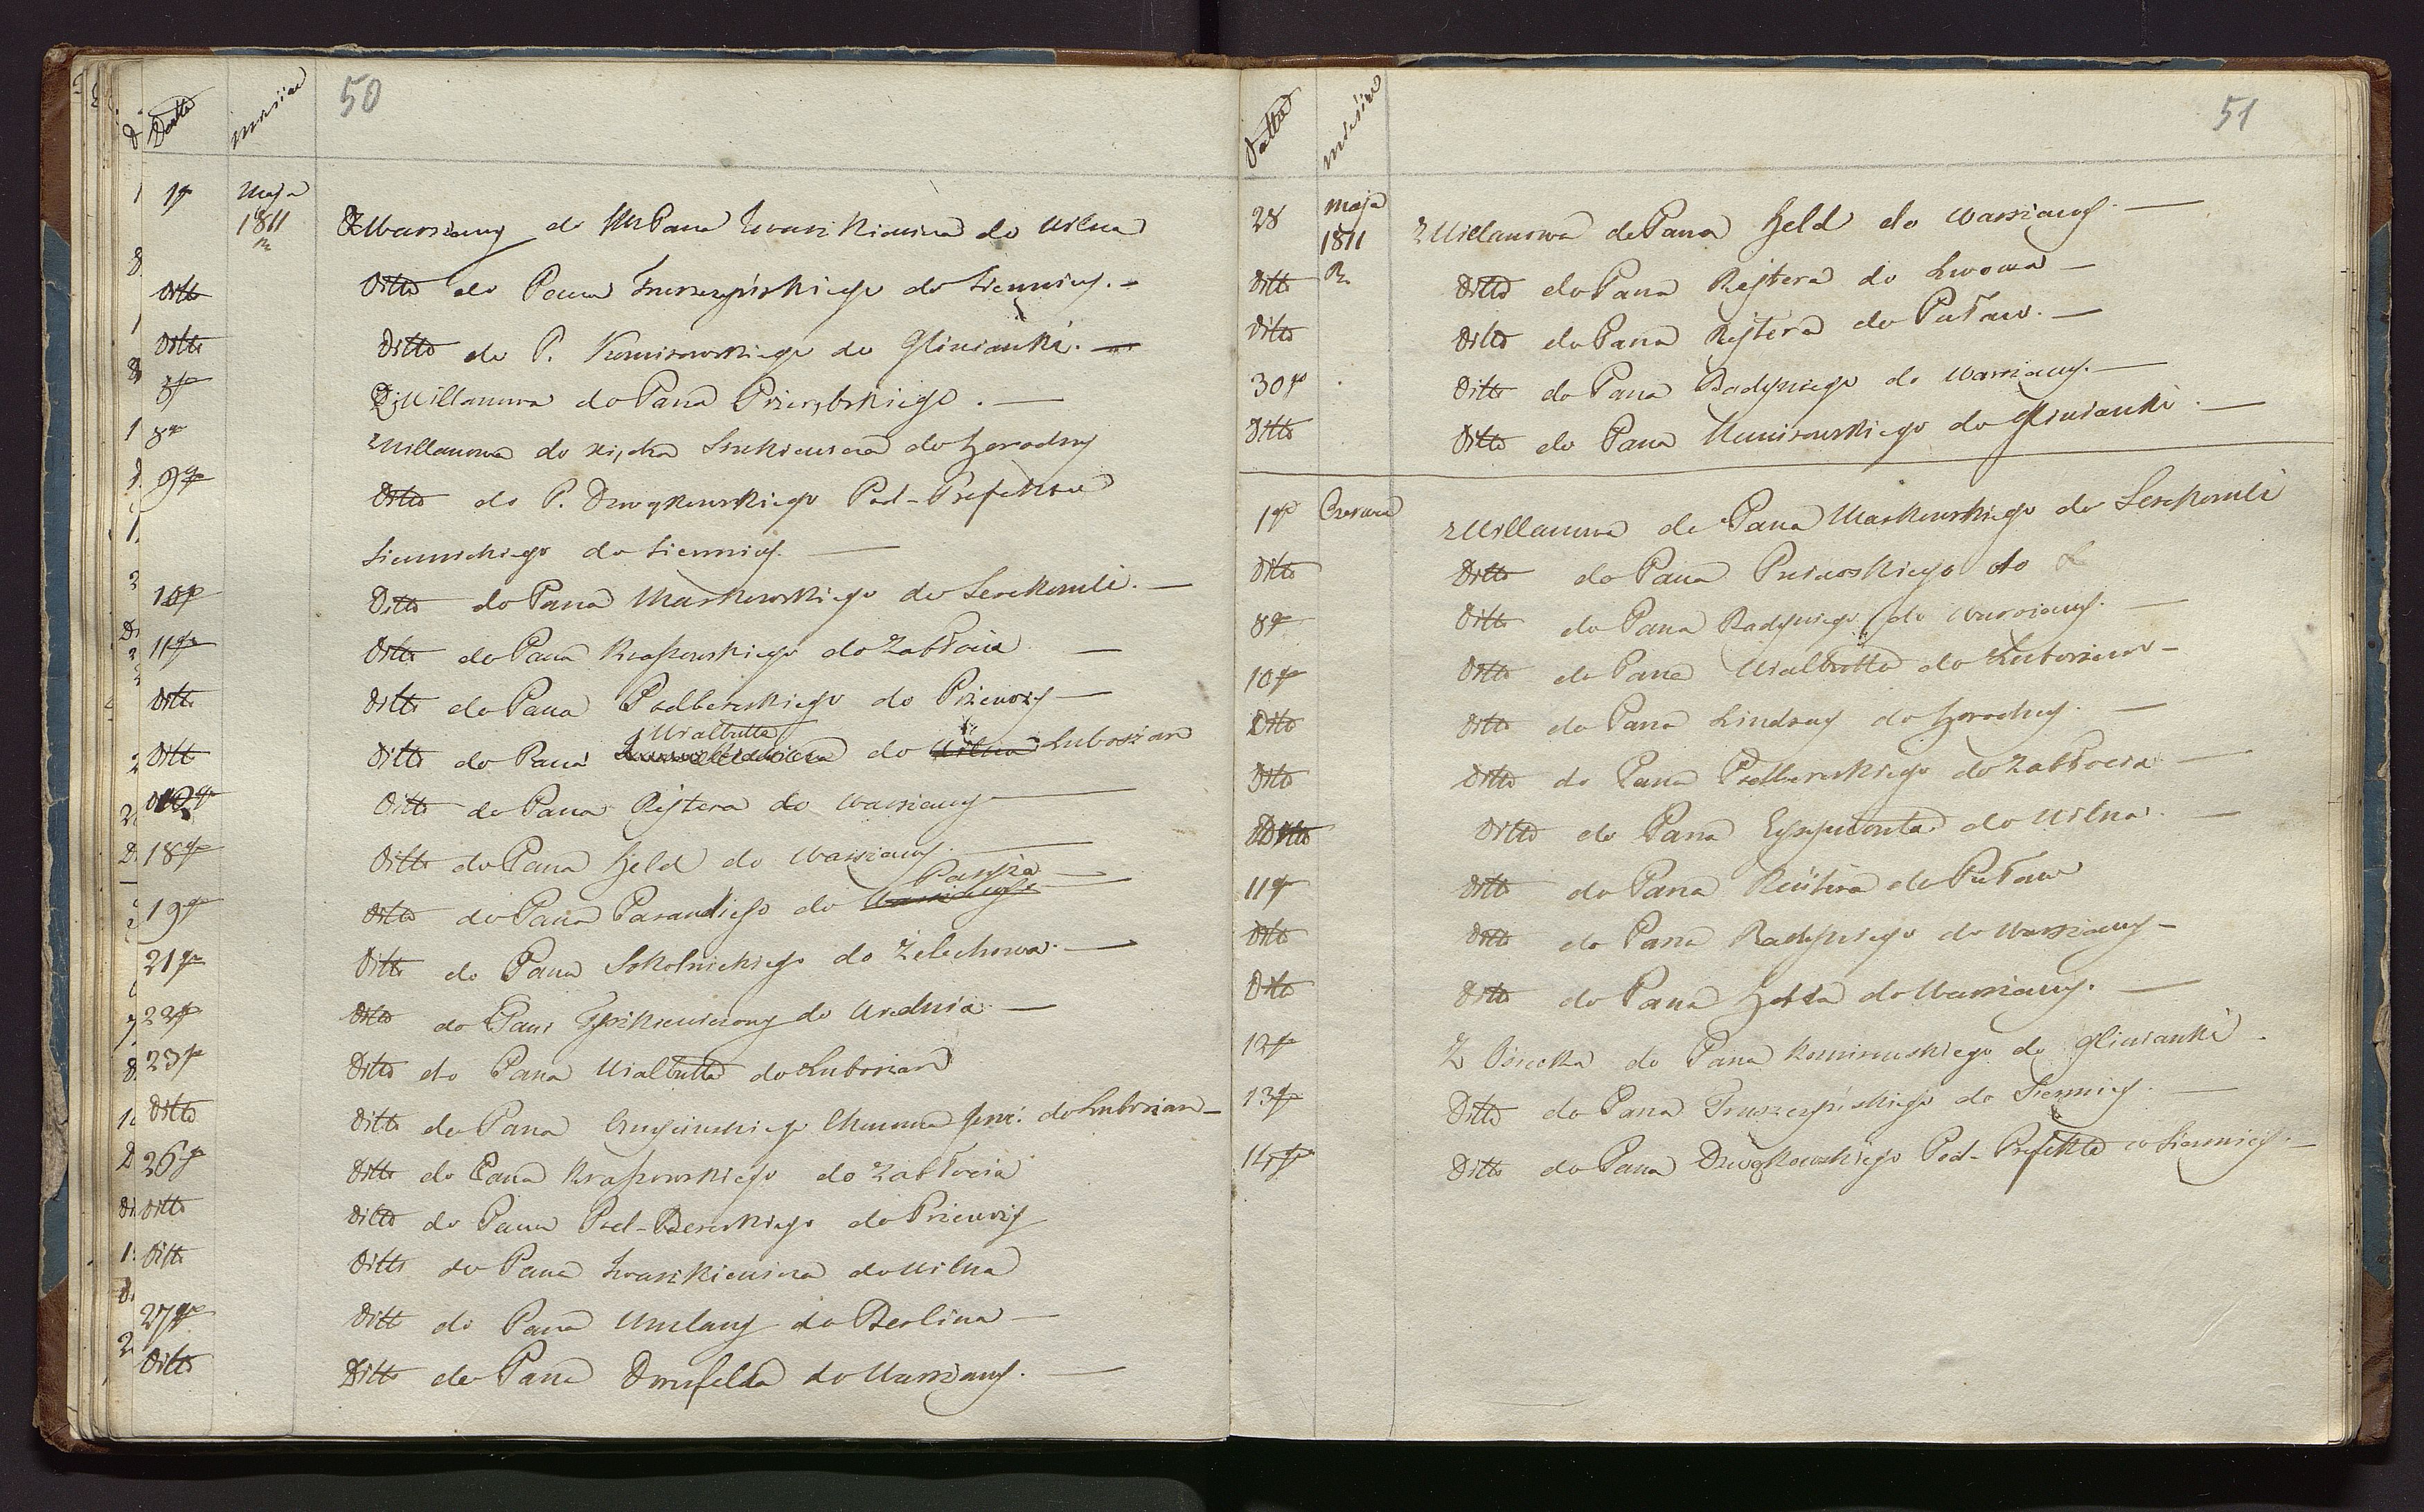 50
Datta miesiac
1go Maja ZWarszawy do WPana Iwaszkiewicza do Wilna
1811
Ditto Ditto do Pana Truszczyńskiego do Siennicy. —
Ditto Ditto do P. Komirowskiego do Glinianki. —
ZWillanowa do Pana Przerębskiego. —
8go zWillanowa do Xiędza Szukiewicza do Horodny
9go Ditto do P. Dzwonkowskiego Pod-Prefekta
Siennickiego do Siennicy. —
10go Ditto do Pana Markowskiego do Serokomli. —
11go Ditto do Pana Krassowskiego do Zabłocia —
Ditto Ditto do Pana Podberskiego do Prienszy —
Wialbutta
Ditto Ditto do Pana do Wilna Luboszan
12go Ditto do Pana Rejtera do Warszawy —
18go Ditto do Pana Held do Warszawy. —
Paryża —
19go Ditto do Pana Parandiego do Warszawy
21go Ditto do Pana Sokolnickiego do Żelechowa. —
22go Ditto do Pani Tyszkiewiczowy do Wiednia. —
23go Ditto do Pana Wialbutta do Luboszan
Ditto Ditto do Pana do Luboszan —
26go Ditto do Pana Krassowskiego do Zabłocia
Ditto Ditto do Pana Pod-Berskiego do Prienszy
Ditto Ditto do Pana Iwaszkiewicza do Wilna
27go Ditto do Pana Umlauf do Berlina —
Ditto Ditto do Pana Dornfelda do Warszawy. —
51
Datta miesiac
28 maja zWillanowa do Pana Held do Warszawy. —
1811
Ditto R. Ditto do Pana Rejtera do Lwowa —
Ditto Ditto do Pana Rejtera do Puław. —
30go Ditto do Pana Radyniego do Warszawy. —
Ditto Ditto do Pana Kumirowskiego do Glinianki. —
1go Czerwca zWillanowa do Pana Markowskiego do Serokomli
Ditto Ditto do Pana do
8go Ditto do Pana Radyniego do Warszawy. —
10go Ditto do Pana Wialbutta do Luboszan —
Ditto Ditto do Pana Lindsay do Horodny. —
Ditto Ditto do Pana Podberskiego do Zabłocia —
Ditto Ditto do Pana Eysymonta do Wilna. —
11go Ditto do Pana Reütera do Puław
Ditto Ditto do Pana Radyniego do Warszawy —
Ditto Ditto do Pana Helda do Warszawy. —
12go Z Osiecka do Pana Komirowskiego do Glinianki.
13go Ditto do Pana Truszczyńskiego do Siennicy. —
14go Ditto do Pana Dzwonkowskiego Pod-Prefekta w Siennicy. —